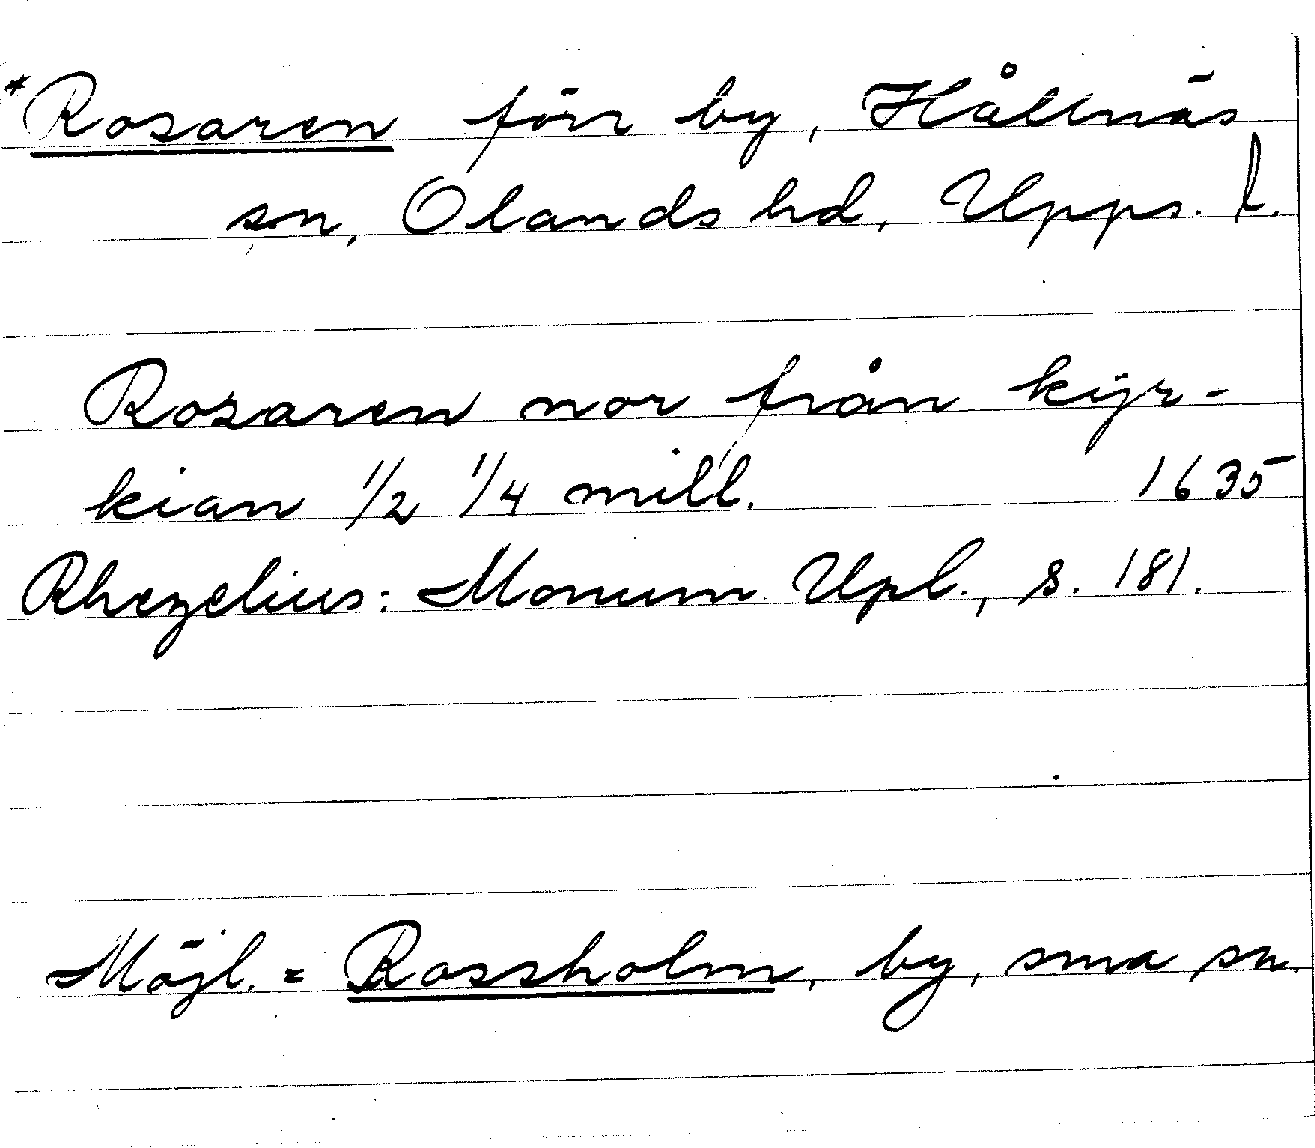 *Rosaren förr by, Hållnäs
sn, Olands hd, Upps. l.
Rosaren nor från kÿr-
kian 1/2 1/4 mill. 1635
Rhezelius: Monum Upl., s. 181.
Möjl. = Rossholm, by, sma sn.